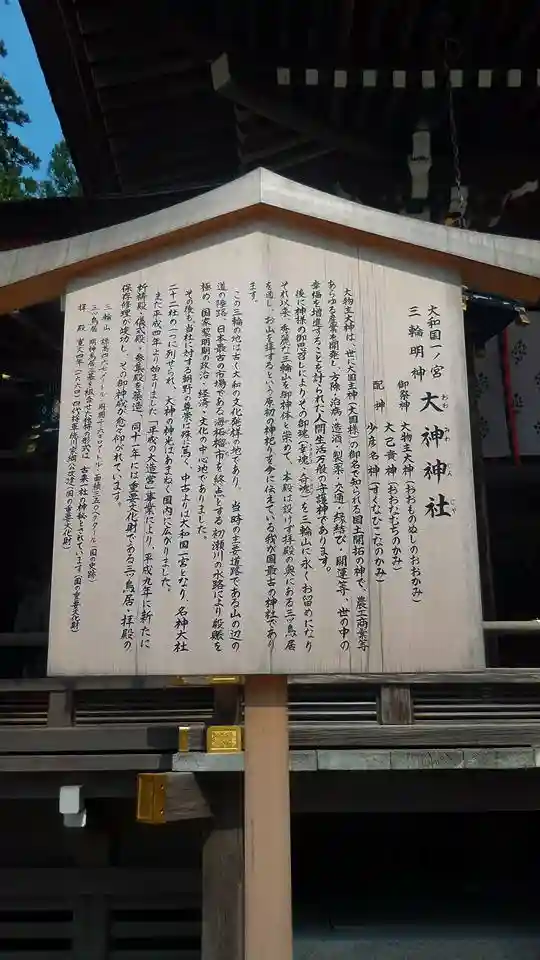 大和国一ノ宮
三輪明神
大神神社
おおみわじんじゃ
御祭神 大物主大神(おおものぬしのおおかみ)
配神 大己貴神(おおなむちのかみ)
少彦名神(すくなひこなのかみ)
大物主大神は、世に大国主神(大国様)の御名で知られる国土開拓の神で、農工商業等
あらゆる産業を開発し、方除・治病・造酒・製薬・交通・縁結び・開運等、世の中の
幸福を増進することを計られた人間生活万般の守護神であります。
後に神様の御思召しによりその御魂(幸魂・奇魂)を三輪山に永くお留めになり
それ以来、秀麗な三輪山を御神体と崇めて、本殿は設けず拝殿の奥にある三ツ鳥居
を通し、お山を拝するという原初の神祀りを今に伝えている我が国最古の神社であり
ます。
この三輪の地は古く大和の文化発祥の地であり、当時の主要道路である山の辺の
道の接路、日本最古の市場である海柘榴市を終点とする初瀬川の水路により殷賑を
極め、国家黎明期の政治・経済・文化の中心地でありました。
その後も当社に対する朝野の尊崇は殊に篤く、中古よりは大和国一宮となり、名神大社
二十二社の一つに列せられ、大神の神光はあまねく国内に広がりました。
また平成四年より始りました「平成の大造営」事業により、平成九年に新たに
祈祷殿・儀式殿・参集殿を築造、同十一年には重要文化財である三ツ鳥居・拝殿の
保存修理が竣功し、その御神威が愈々仰がれています。
三輪山 標高四六七メートル・周囲十六キロメートル・面積三五〇ヘクタール(国の史跡)
三ツ鳥居 明神鳥居三基を組合せた独特の形式は、古来一社の神秘とされています(国の重要文化財)
拝殿 寛文四年(一六六四)四代将軍徳川家綱公改建(国の重要文化財)